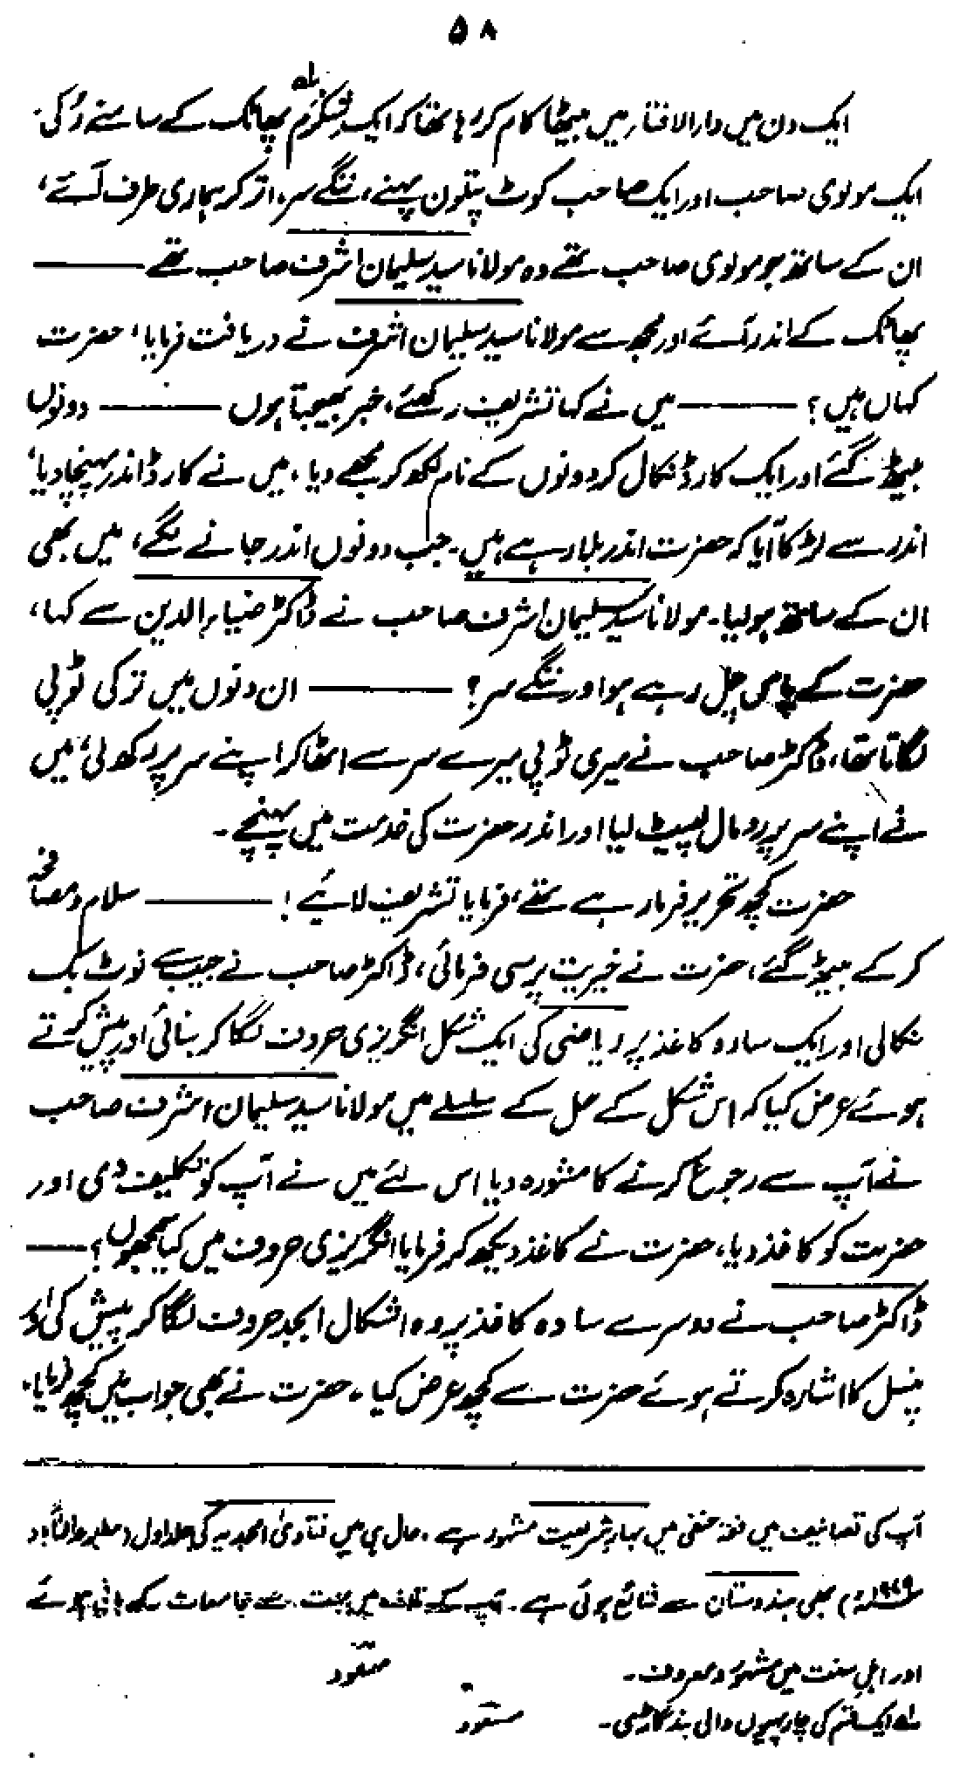 ۵۸
ایک دن میں دارالافتار میں بیٹھا کام کر رہا تھا کہ ایک شکرم لہ پھاٹک کے سامنے رُکی.
ایک مولوی صاحب اور ایک صاحب کوٹ پتلون پہنے، ننگے سر، اتر کر ہماری طرف آئے،
ان کے ساتھ جو مولوی صاحب تھے وہ مولانا سید سلیمان اشرف صاحب تھے ———
پھاٹک کے اندر آئے اور مجھ سے مولانا سید سلیمان اشرف نے دریافت فرمایا، حضرت
کہاں ہیں؟ ——— میں نے کہا تشریف رکھئے، خبر بھیجتا ہوں ——— دونوں
بیٹھ گئے اور ایک کارڈ نکال کر دونوں کے نام لکھ کر مجھے دیا، میں نے کارڈ اندر پہنچا دیا،
اندر سے لڑکا آیا کہ حضرت اندر بلا رہے ہیں۔ جب دونوں اندر جانے لگے، میں بھی
ان کے ساتھ ہو لیا۔ مولانا سید سلیمان اشرف صاحب نے ڈاکٹر ضیاء الدین سے کہا،
حضرت کے پاس چل رہے ہو اور ننگے سر؟ ——— ان دنوں میں ترکی ٹوپی
لگاتا تھا، ڈاکٹر صاحب نے میری ٹوپی میرے سر سے اٹھا کر اپنے سر پر رکھ لی، میں
نے اپنے سر پر رومال لپیٹ لیا اور اندر حضرت کی خدمت میں پہنچے۔
حضرت کچھ تحریر فرما رہے تھے، فرمایا تشریف لائیے! ——— سلام و مصافحہ
کر کے بیٹھ گئے، حضرت نے خیریت پرسی فرمائی، ڈاکٹر صاحب نے جیب سے نوٹ بک
نکالی اور ایک سادہ کاغذ پر ریاضی کی ایک شکل انگریزی حروف لگا کر بنائی اور پیش کرتے
ہوئے عرض کیا کہ اس شکل کے حل کے سلسلے میں مولانا سید سلیمان اشرف صاحب
نے آپ سے رجوع کرنے کا مشورہ دیا اس لئے میں نے آپ کو تکلیف دی اور
حضرت کو کاغذ دیا، حضرت نے کاغذ دیکھ کر فرمایا انگریزی حروف میں کیا سمجھوں؟ ——
ڈاکٹر صاحب نے دوسرے سادہ کاغذ پر وہ اشکال ابجد حروف لگا کر پیش کی اور
پنسل کا اشارہ کرتے ہوئے حضرت سے کچھ عرض کیا۔ حضرت نے بھی جواب میں کچھ فرمایا۔
آپ کی تصانیف میں فقہ حنفی میں بہار شریعت مشہور ہے۔ حال ہی میں فتاویٰ امجدیہ کی جلد اول (مطبوعہ
بھی ہندوستان سے شائع ہوئی ہے۔ آپ کے تلامذہ میں بہت سے جامعات کے بانی ہوئے
اور اہل سنت میں مشہور و معروف۔ مسعود
لہ ایک قسم کی چار پہیوں والی بند گاڑی۔ مسعود